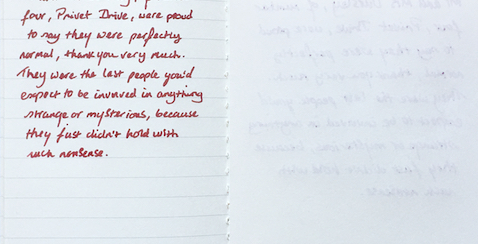 four, Privet Drive, were proud
to say they were perfectly
normal, thank you very much.
They were the last people you'd
expect to be involved in anything
strange or mysterious, because
they just didn't hold with
such nonsense.